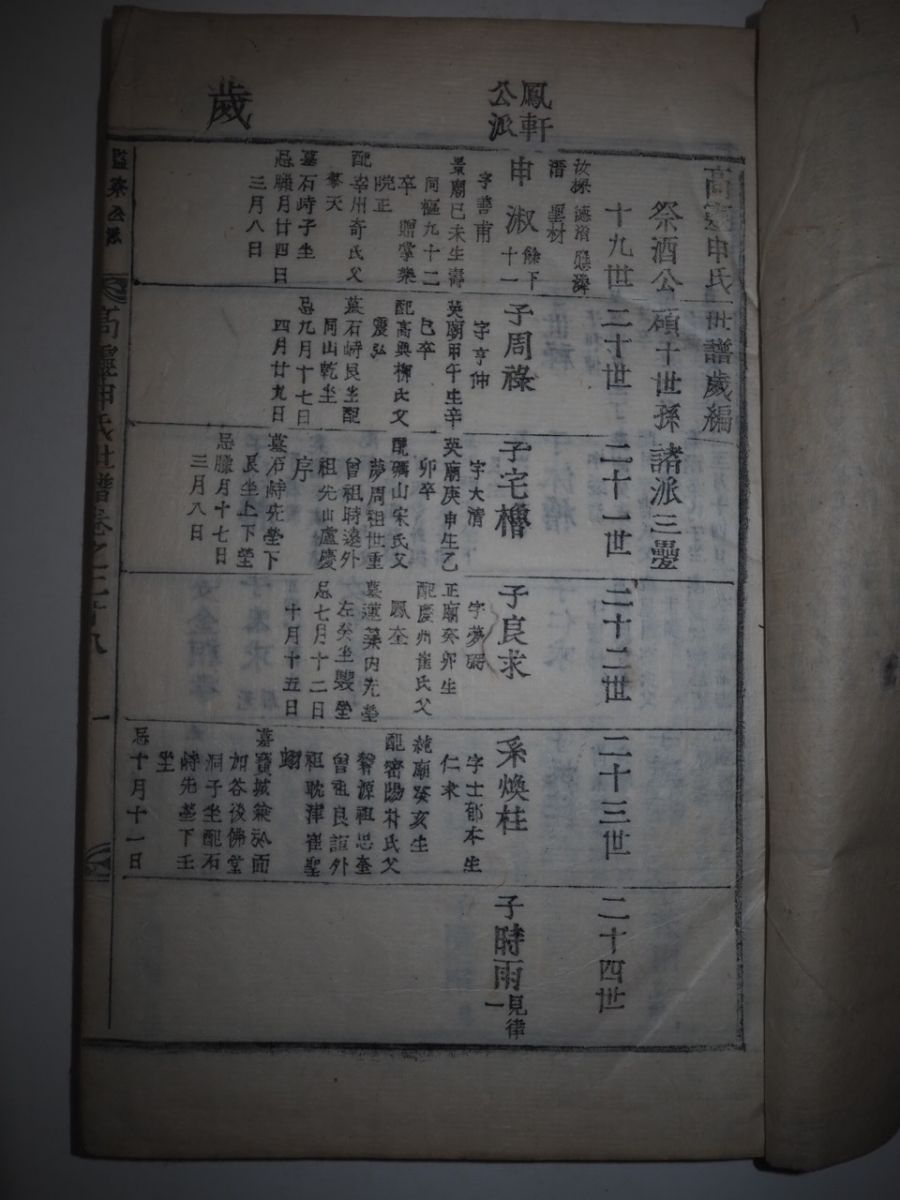 歲
鳳軒
公派
高靈申氏世譜歲編
祭酒公碩十世孫 諸派三疊
十九世
二十世
二十一世
二十二世
二十三世
二十四世
汝樑 德濬
潛
申淑 餘下十一
字善甫
景廟己未生壽
同樞九十二
卒 贈掌樂
院正
配幸州奇氏父
擎天
墓石峙子坐
忌臘月廿四日
三月八日
子周祿
字亨仲
英廟甲午生辛
巳卒
配高興柳氏父
震弘
墓石峙艮坐配
同山乾坐
忌九月十七日
四月廿九日
子宅櫓
字大淸
英廟庚申生乙
卯卒
配礪山宋氏父
夢周祖世重
曾祖時遠外
祖光山盧慶
序
墓石峙先塋下
艮坐上下塋
忌臘月十七日
三月八日
子良求
字夢弼
正廟癸卯生
配慶州崔氏父
鳳奎
墓蓮葉內先塋
左癸坐雙塋
忌七月十二日
十月十五日
系煥柱
字士郁本生
仁求
純廟癸亥生
配密陽朴氏父
馨源祖思奎
曾祖良誼外
祖耽津崔聖
翊
墓寶城兼於面
加谷後佛堂
洞子坐配石
峙先塋下壬
坐
忌十月十一日
子時雨 見律一
監察公派
高靈申氏世譜卷之二十八
一